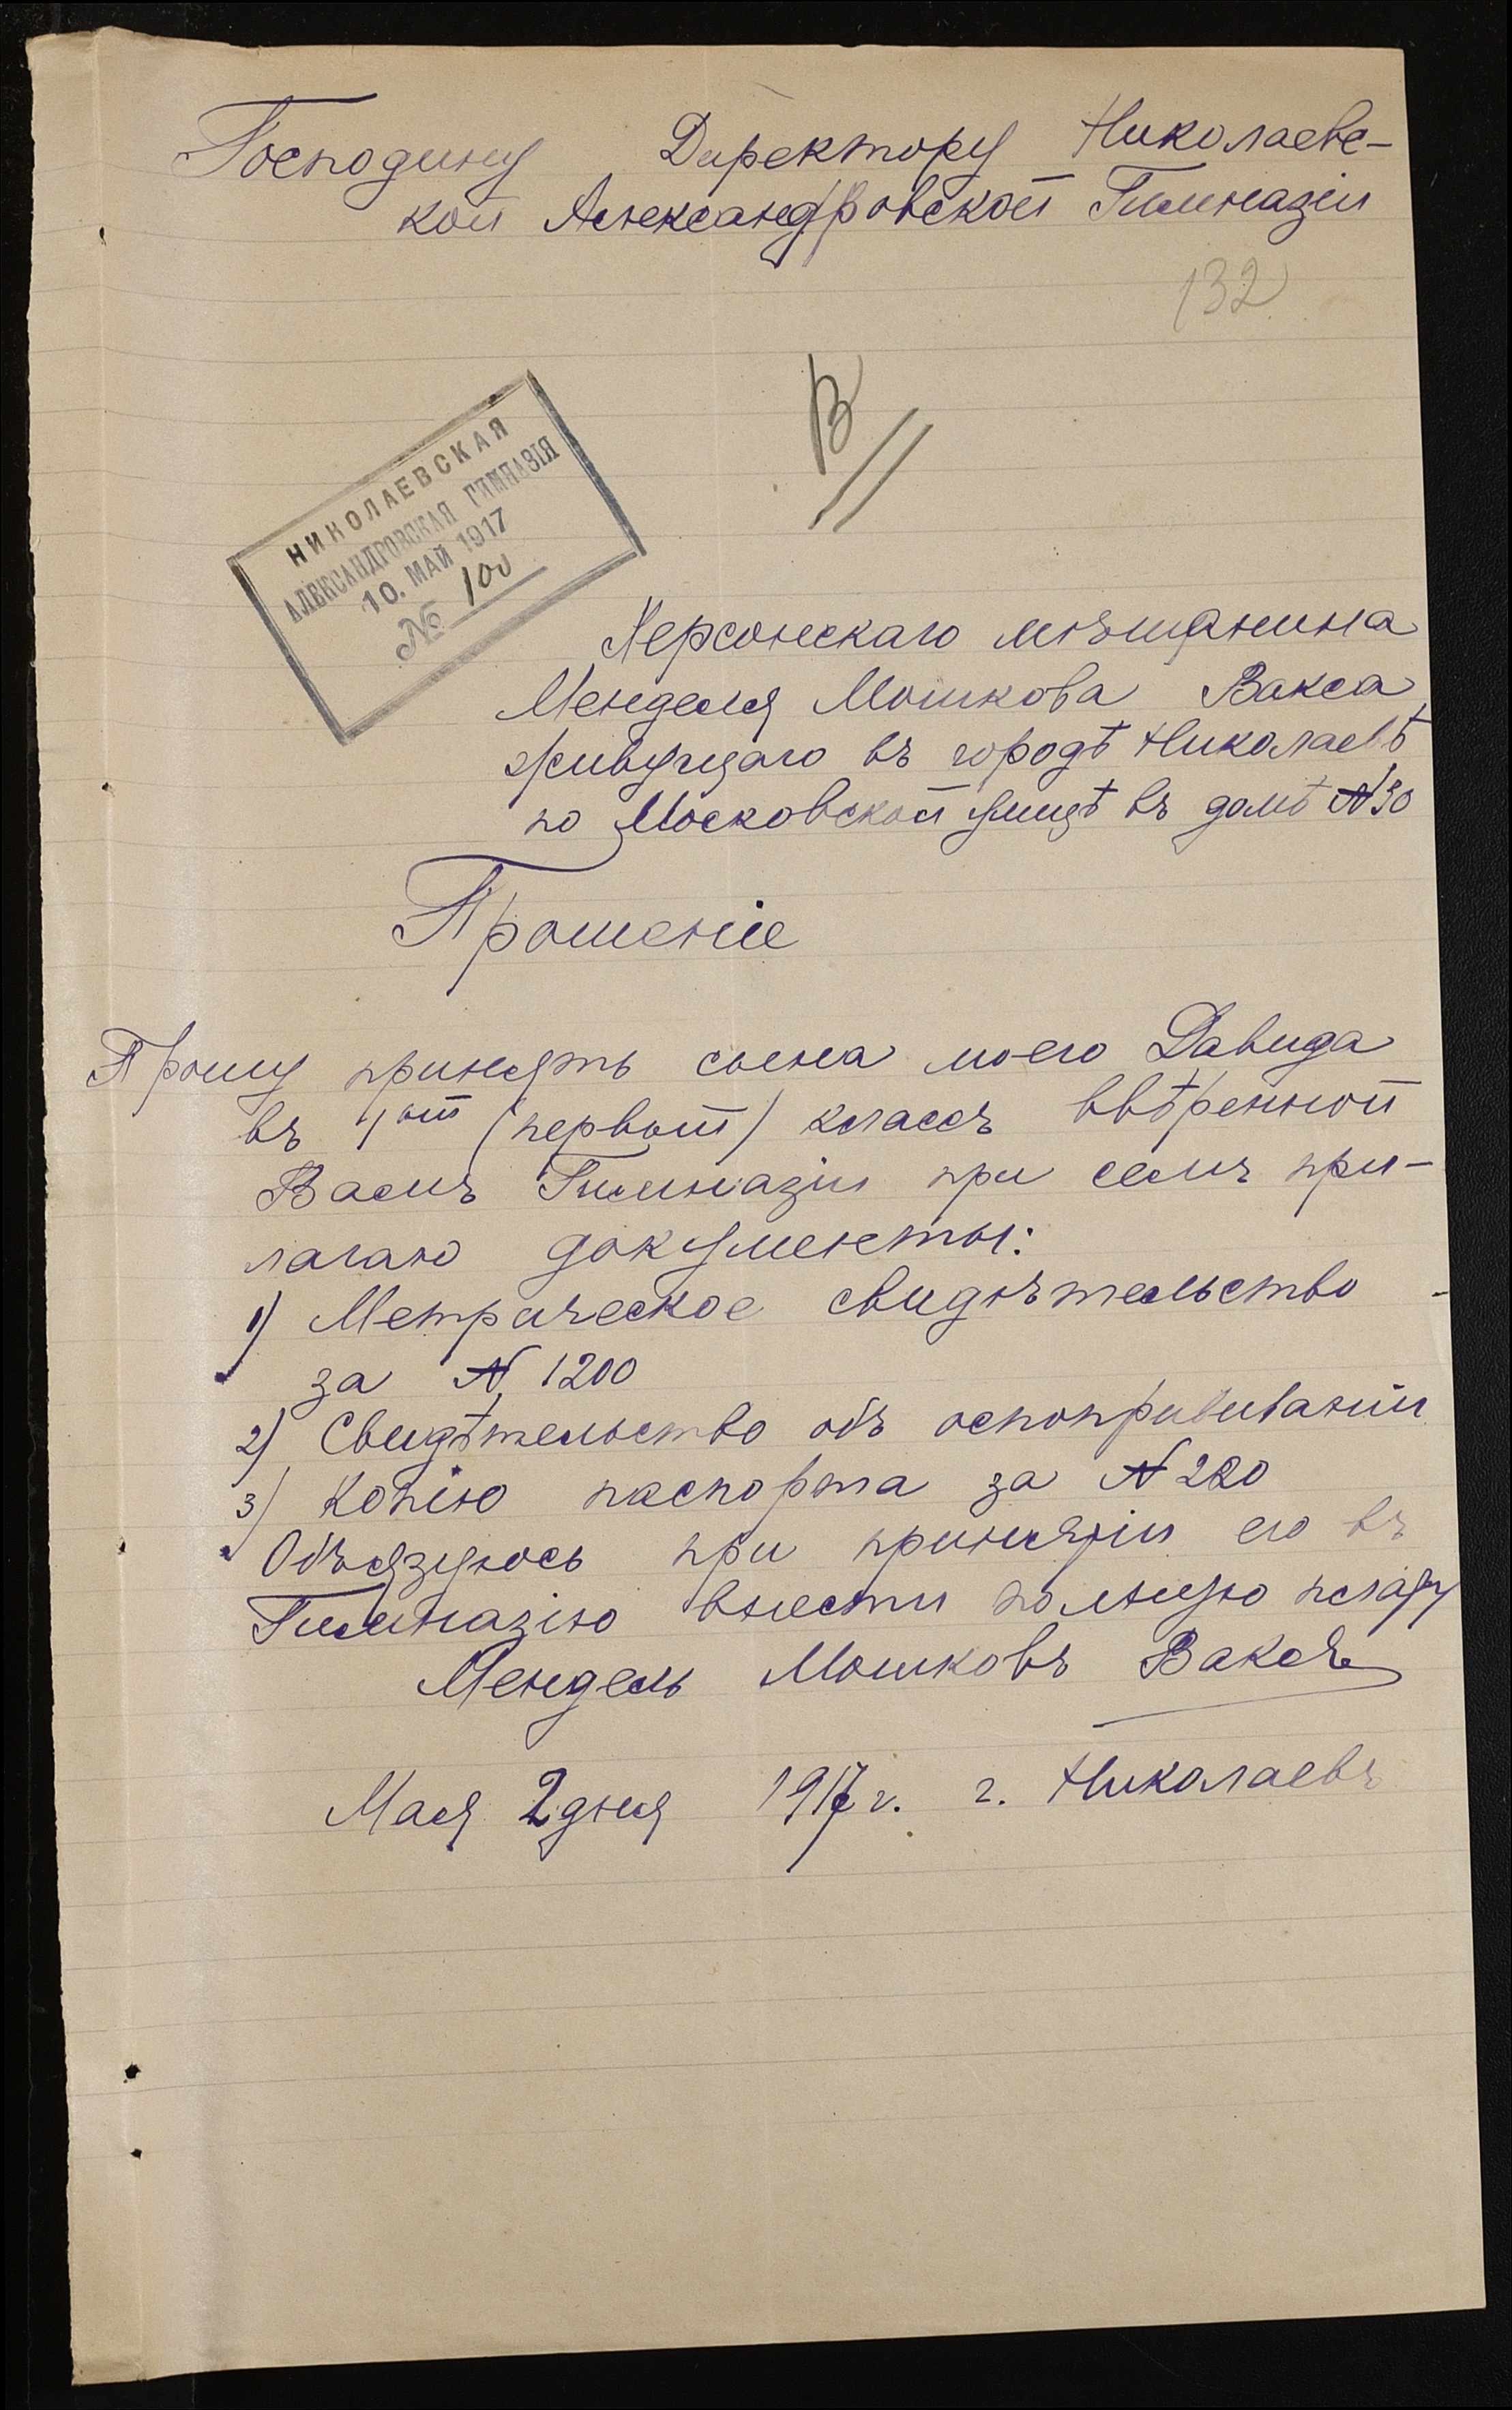 Господину Директору Николаевс-
кой Александровской Гимназіи
132
В
НИКОЛАЕВСКАЯ
АЛЕКСАНДРОВСКАЯ ГИМНАЗІЯ
10. МАЙ 1917
№ 100
Херсонскаго мѣщанина
Менделя Мошкова Вакса
живущаго въ городѣ Николаевѣ
по Московской улицѣ въ домѣ №30
Прошеніе
Прошу принять сына моего Давида
въ 1ый (первый) классъ ввѣренной
Вамъ Гимназіи при семъ при-
лагаю документы:
1) Метрическое свидѣтельство
за № 1200
2) Свидѣтельство объ оспопрививаніи
3) Копію паспорта за № 220
Объязуюсь при принятіи его въ
Гимназію внести полную плату
Мендель Мошковъ Ваксъ
Мая 2 дня 1917 г. г. Николаевъ